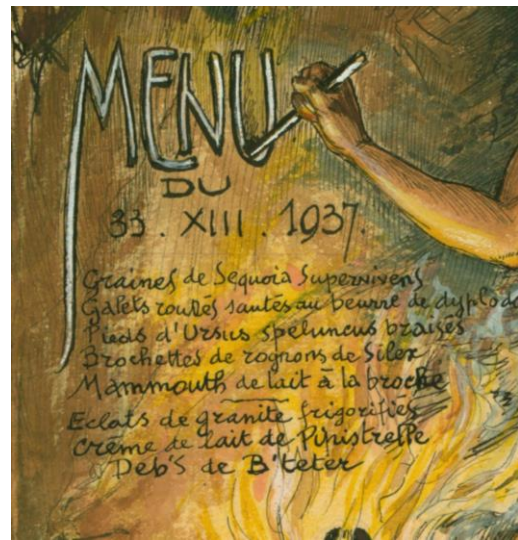 MENU
DU
33. XIII. 1937.
Graines de Sequoia Supervivens
Galets roulés sautés au beurre de dyplodo
Pieds d'Ursus speluncus braisés
Brochettes de rognons de Silex
Mammouth de lait à la broche
Eclats de granite frigorifiés
Crème de lait de Pipistrelle
Deb's de B'teter